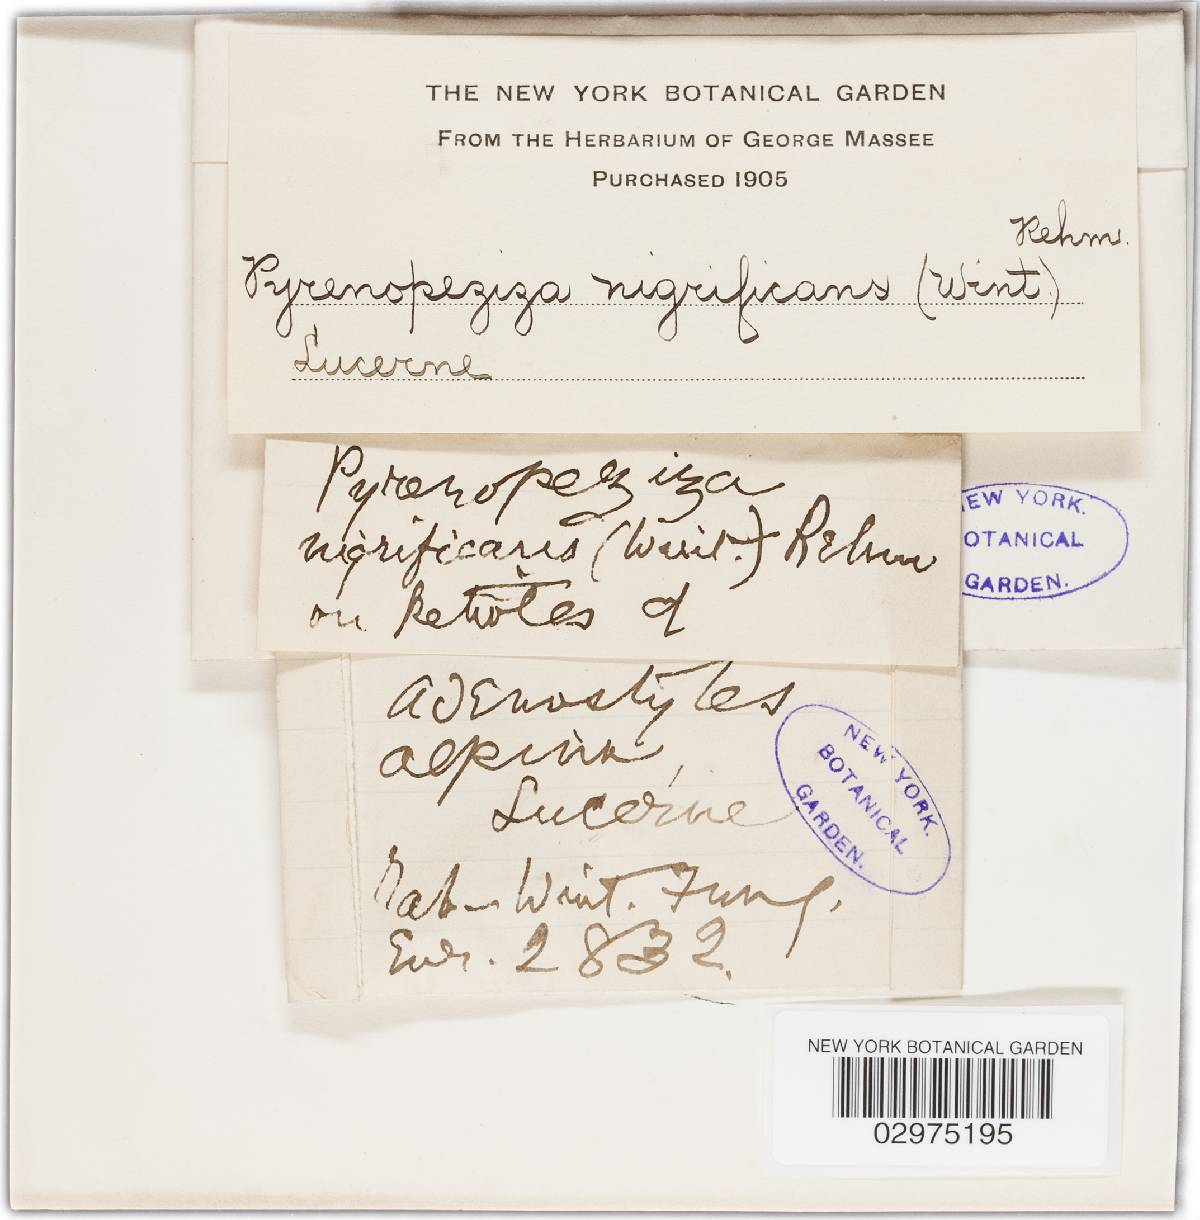 THE NEW YORK BOTANICAL GARDEN
FROM THE HERBARIUM OF GEORGE MASSEE
PURCHASED 1905
Rehm.
Pyrenopeziza nigrificans (Wint.)
Lucerne
Pyrenopeziza
nigrificans (Wint.) Rehm
on Petioles of
Adenostyles
alpina,
Lucerne
Rab-Wint. Fung.
Eur. 2832.
EW YORK.
OTANICAL
GARDEN.
NEW YORK.
BOTANICAL
GARDEN.
NEW YORK BOTANICAL GARDEN
02975195